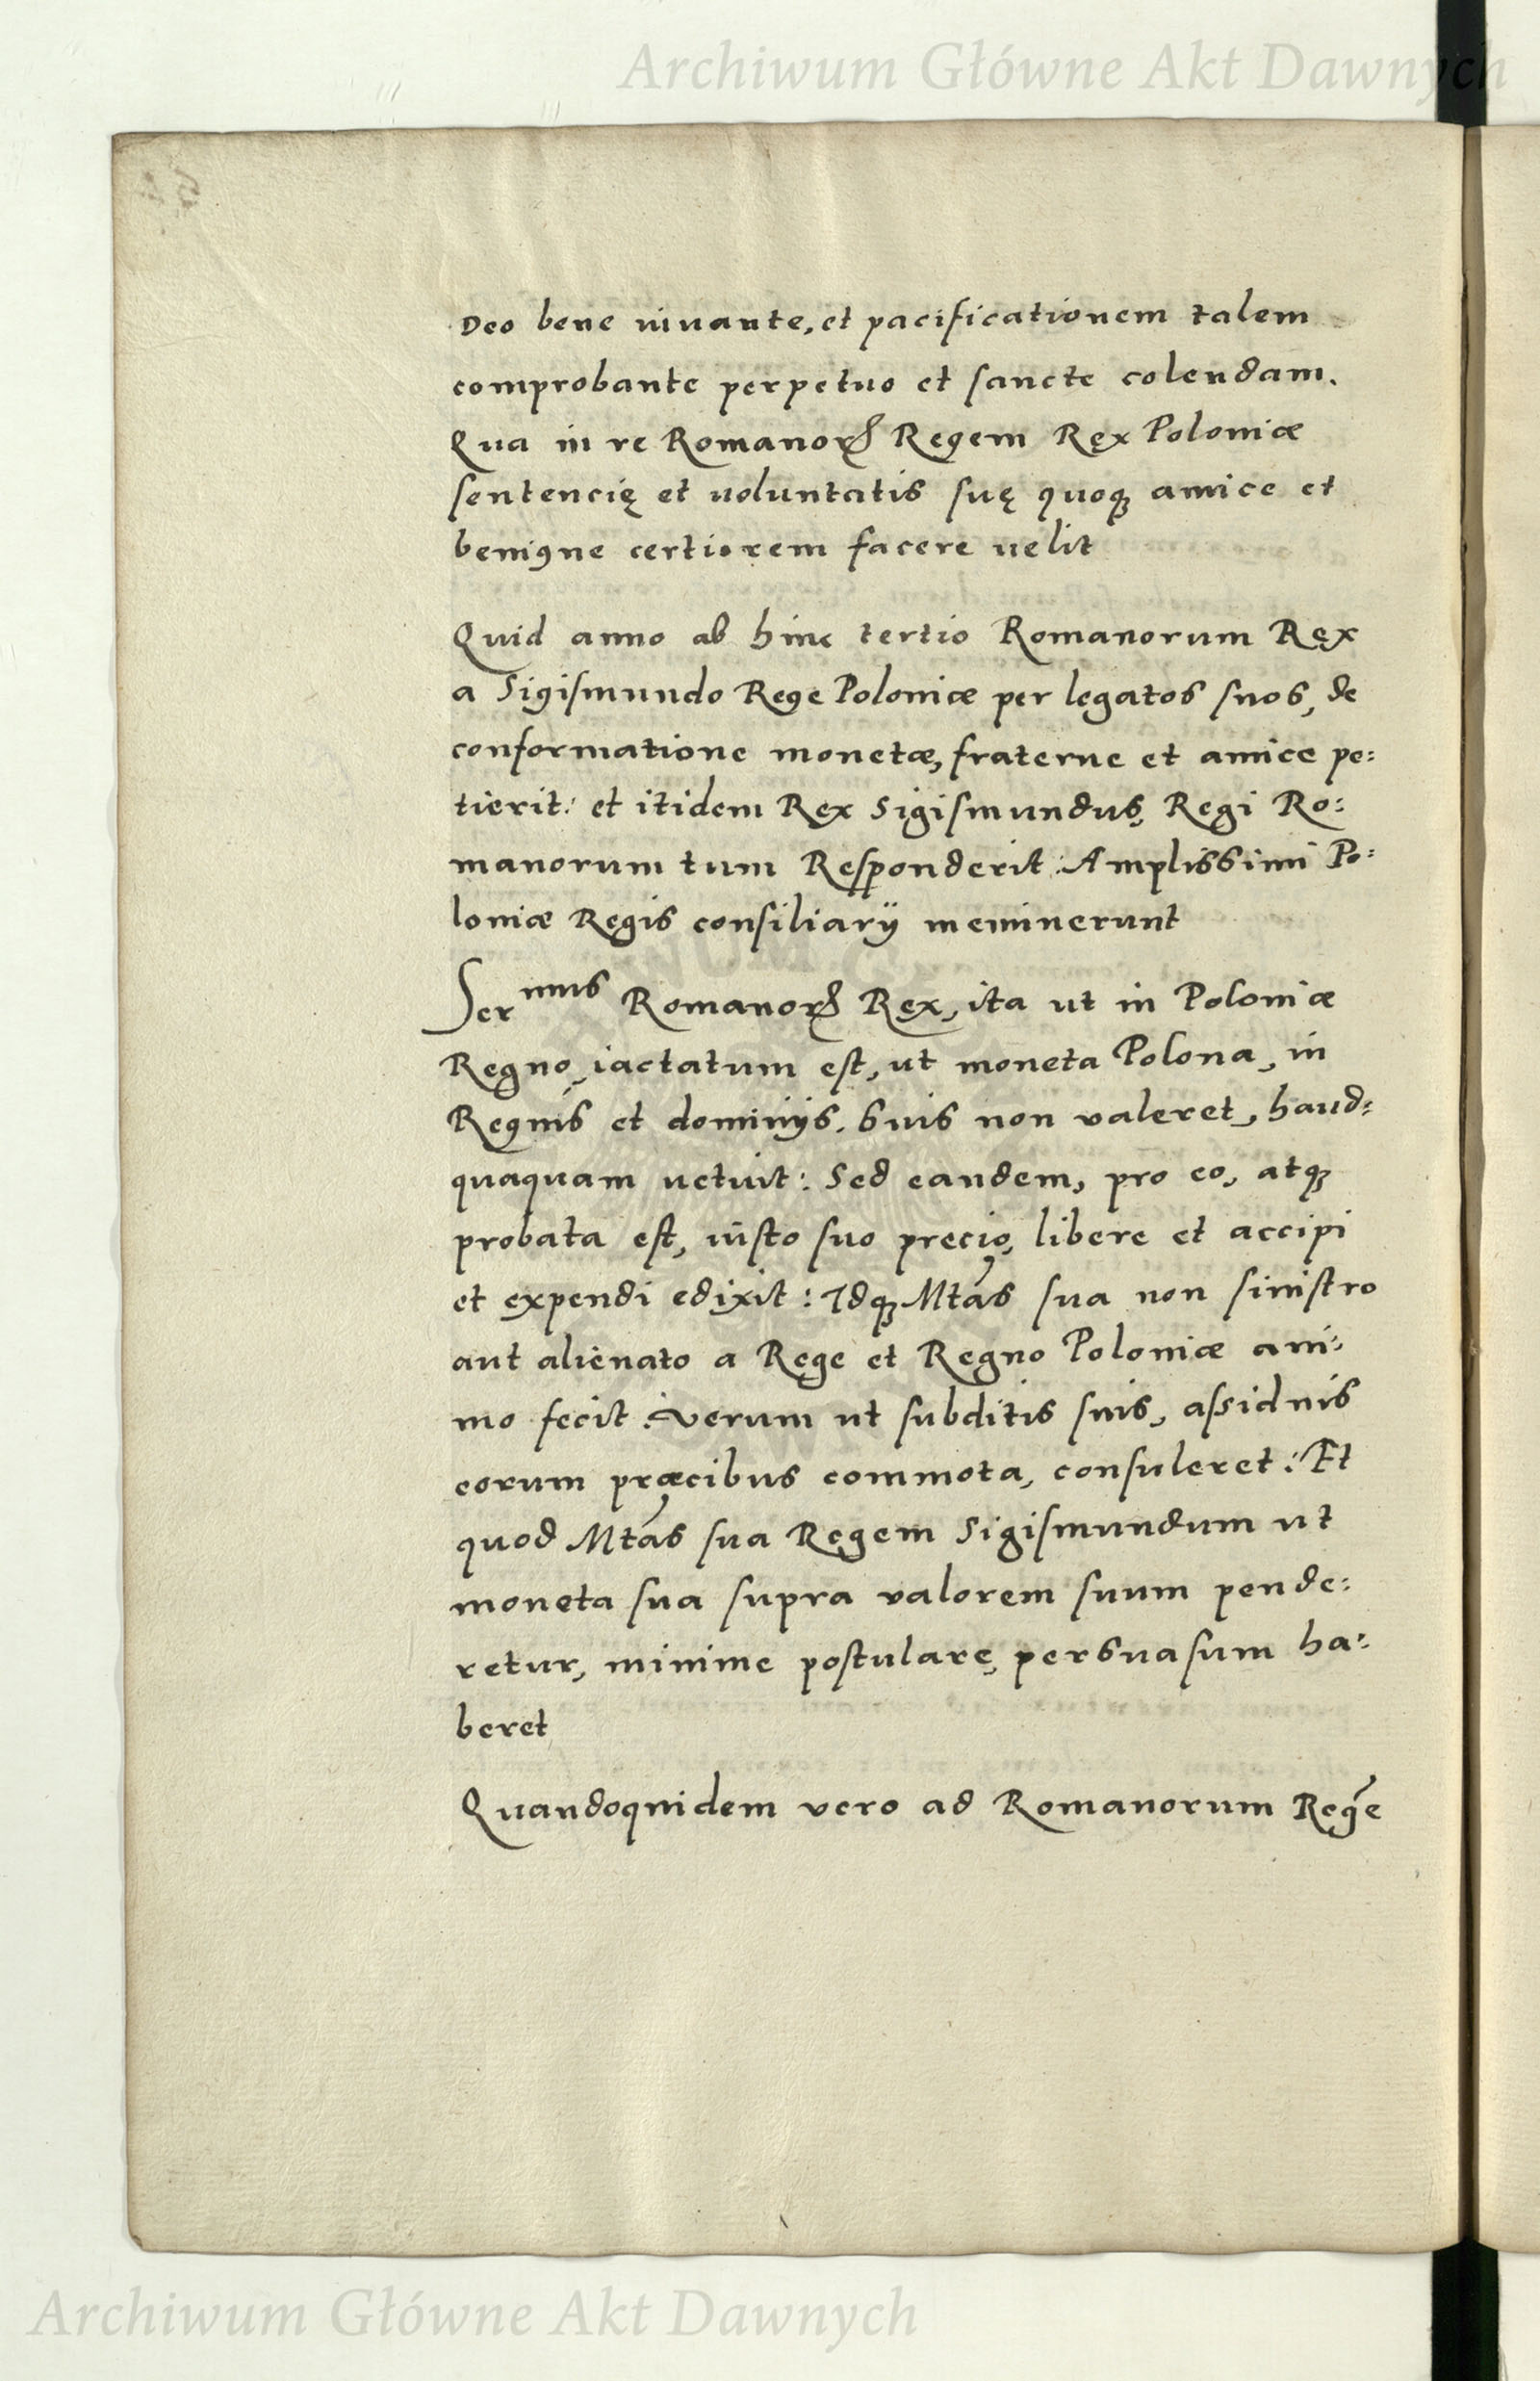 Archiwum Główne Akt Dawnych
Deo bene iuuante, et pacificationem talem
comprobante perpetuo et sancte colendam.
Qua in re Romanorꝝ Regem Rex Poloniæ
sentencię et uoluntatis suę quoqꝫ amice et
benigne certiorem facere uelit
Quid anno ab hinc tertio Romanorum Rex
a Sigismundo Rege Poloniæ per legatos suos, de
conformatione monetæ, fraterne et amice pe:
tierit: et itidem Rex Sigismundus, Regi Ro:
manorum tum Responderit: Amplissimi Po:
loniæ Regis consiliarÿ meminerunt
Sermus Romanorꝝ Rex, ita ut in Poloniæ
Regno, iactatum est, ut moneta Polona, in
Regnis et dominÿs, suis non valeret, haud:
quaquam uetuit: Sed eandem, pro eo, atqꝫ
probata est, iusto suo precio, libere et accipi
et expendi edixit: Idqꝫ Mtas sua non sinistro
aut alienato a Rege et Regno Poloniæ ani:
mo fecit: verum ut subditis suis, assiduis
eorum præcibus commota, consuleret: Et
quod Mtas sua Regem Sigismundum ut
moneta sua supra valorem suum pende:
retur, minime postulare, persuasum ha:
beret
Quandoquidem vero ad Romanorum Regē
Archiwum Główne Akt Dawnych